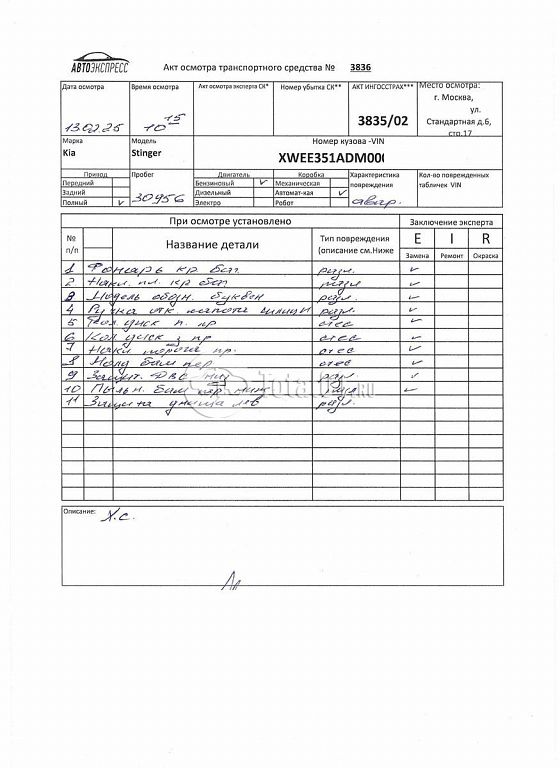 АВТОЭКСПРЕСС
Акт осмотра транспортного средства № 3836
Дата осмотра Время осмотра Акт осмотра эксперта СК* Номер убытка СК** АКТ ИНГОССТРАХ*** Место осмотра:
13.02.25 10 15 3835/02 г. Москва, ул. Стандартная д.6, стр.17
Марка Модель Номер кузова -VIN
Kia Stinger XWEE351ADM00
Привод Пробег Двигатель Коробка Характеристика повреждения Кол-во поврежденных табличек VIN
Передний Бензиновый ✓ Механическая
Задний 30956 Дизельный Автомат-кая ✓ авар.
Полный ✓ Электро Робот
При осмотре установлено Заключение эксперта
№ п/п Название детали Тип повреждения (описание см.Ниже E I R
Замена Ремонт Окраска
1 Фонарь кр баг разл. ✓
2 Накл. пл. кр баг разл ✓
3 разл. ✓
4 Ручка отк. капота разл. ✓
5 диск п. пр ✓
6 Кол диск з пр ✓
7 Накл порога пр. ✓
8 Молд бам пер ✓
9 Защит. ДВС ниж разл ✓
10 Пыльн. бам пер ниж разл ✓
11 Защита днища лев разл.
Total01.RU
Описание: Х.С.